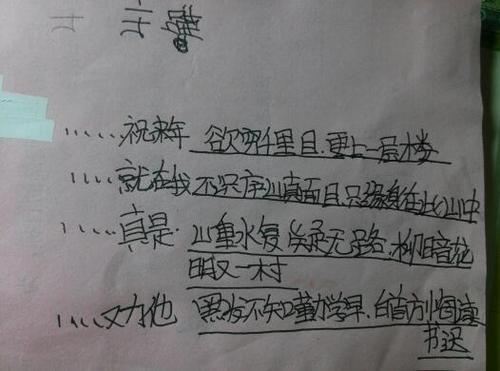 ……祝来年 欲穷千里目.更上一层楼
……就在我 不识庐山真面目只缘身在此山中
……真是.山重水复疑无路.柳暗花
明又一村
……劝他 黑发不知勤学早.白首方悔读
书迟